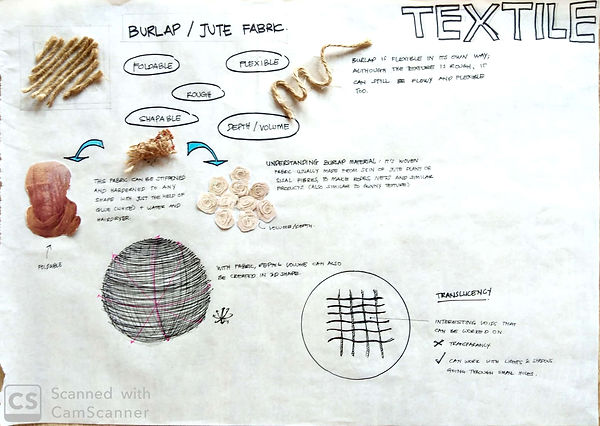 TEXTILE
BURLAP / JUTE FABRIC.
FOLDABLE
FLEXIBLE
ROUGH
SHAPABLE
DEPTH/VOLUME
BURLAP IS FLEXIBLE IN ITS OWN WAY;
ALTHOUGH THE TEXTURE IS ROUGH, IT
CAN STILL BE FLOWY AND FLEXIBLE
TOO.
UNDERSTANDING BURLAP MATERIAL: IT'S WOVEN
FABRIC USUALLY MADE FROM SKIN OF JUTE PLANT OR
SISAL FIBRES, TO MAKE ROPES, NETS AND SIMILAR
PRODUCTS. (ALSO SIMILAR TO GUNNY TEXTURE)
THIS FABRIC CAN BE STIFFENED
AND HARDENED TO ANY
SHAPE WITH JUST THE HELP OF
GLUE (WHITE) + WATER AND
HAIRDRYER.
VOLUME/DEPTH.
FOLDABLE
WITH FABRIC, DEPTH & VOLUME CAN ALSO
BE CREATED IN 2D SHAPE.
TRANSLUCENCY
INTERESTING VOIDS THAT
CAN BE WORKED ON.
TRANSPARENCY
CAN WORK WITH LIGHTS & SHADOWS
GOING THROUGH SMALL HOLES.
CS Scanned with
CamScanner